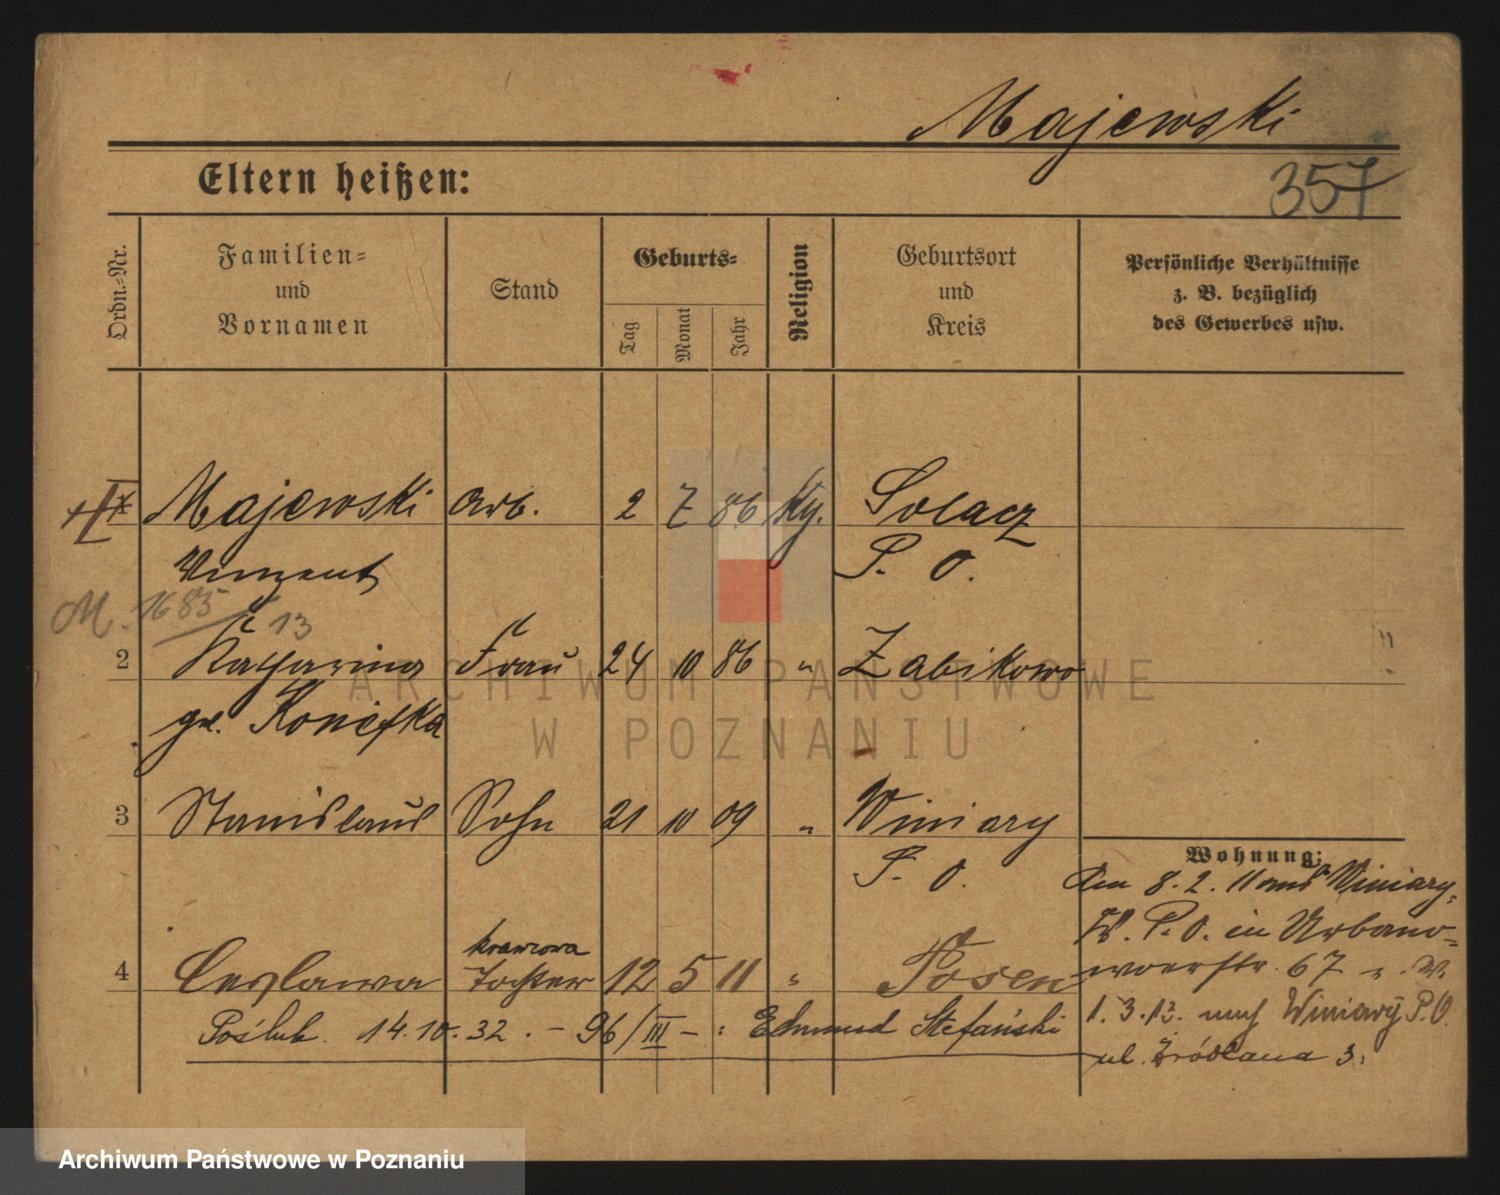 Majewski
357
Eltern heißen:
Ordn.-Nr.
Familien- und Vornamen
Stand
Geburts-
Tag
Monat
Jahr
Religion
Geburtsort und Kreis
Persönliche Verhältnisse
z. B. bezüglich
des Gewerbes usw.
Majewski Arb. 2 7 86 Solacz
Vinzent P. O.
M. 1685
13
2 Katharina Frau 24 10 86 " Zabikowo
Konefka
3 Stanislaus Sohn 21 10 09 " Winiary
P. O.
Wohnung:
Den 8. 2. 11 aus Winiary,
P. O. in Urbano-
krawcowa
4 Ceslawa Tochter 12 5 11 " Posen
67
Poślub. 14. 10. 32. - 96/III - : Edmund Stefański
1. 3. 13. nach Winiary P. O.
ul. Źródlana 3.
ARCHIWUM PAŃSTWOWE
W POZNANIU
Archiwum Państwowe w Poznaniu